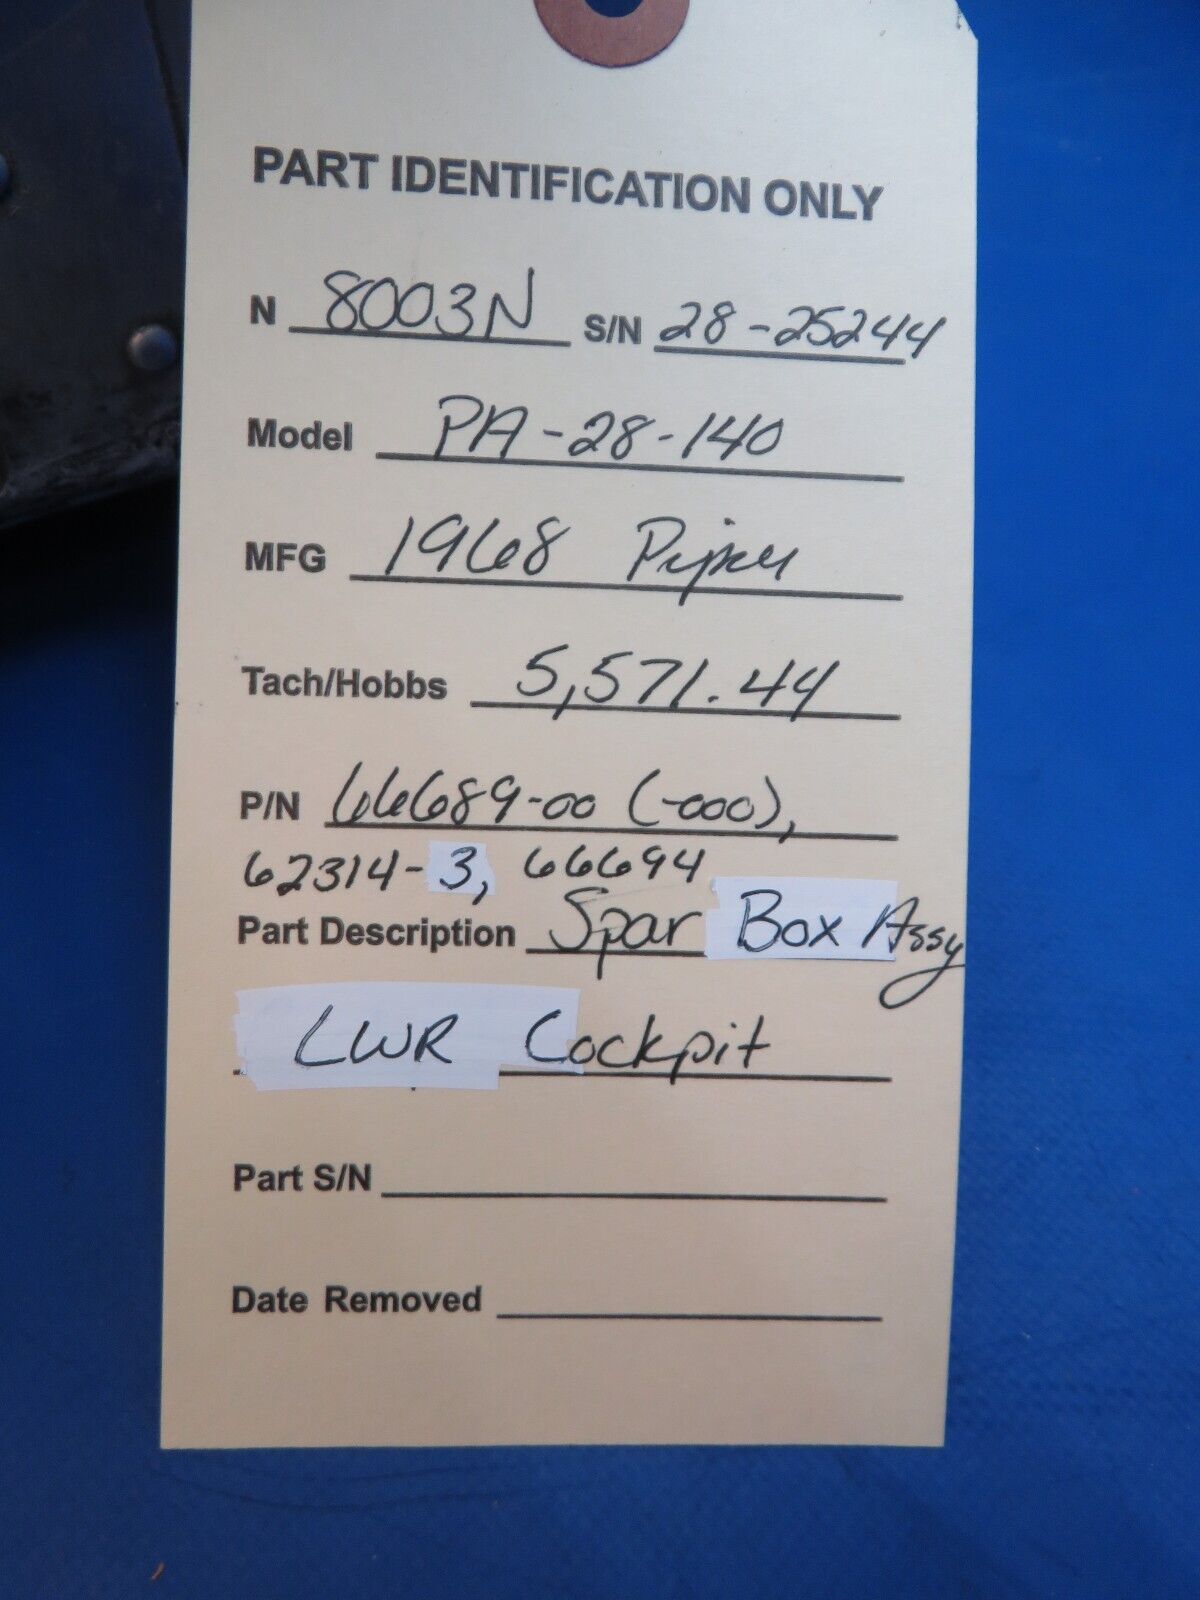 PART IDENTIFICATION ONLY
N 8003N S/N 28-25244
Model PA-28-140
MFG 1968 Piper
Tach/Hobbs 5,571.44
P/N 66689-00 (-000),
62314-3, 66694
Part Description Spar Box Assy
LWR Cockpit
Part S/N
Date Removed